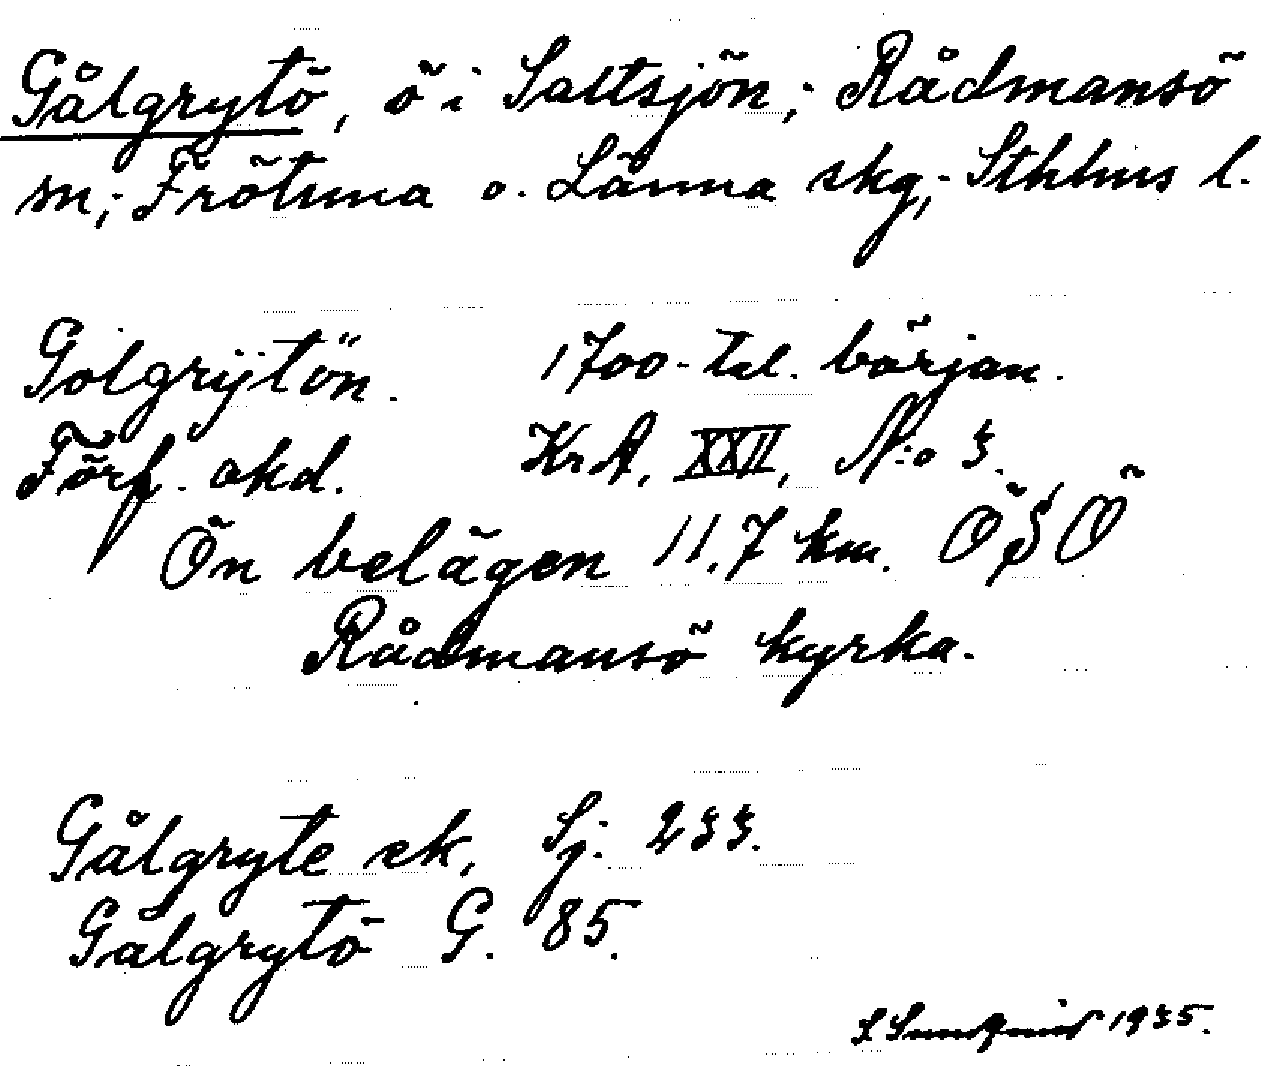 Gålgrytö, ö i Saltsjön; Rådmansö
sn; Frötuna o. Länna skg; Sthlms l.
Golgrijtön. 1700-tal. början.
Förf. okd. KrA, XXII, N:o 3.
Ön belägen 11.7 km. ÖSÖ
Rådmansö kyrka.
Gålgryte ek, Sj. 233.
Gålgrytö G. 85.
1935.